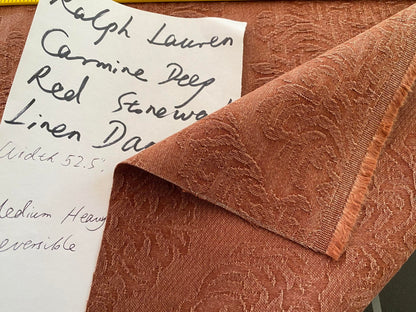 Ralph Lauren
Carmine Deep
Red Stonewa
Linen Da
Width 52.5"
Medium Heavy
Reversible